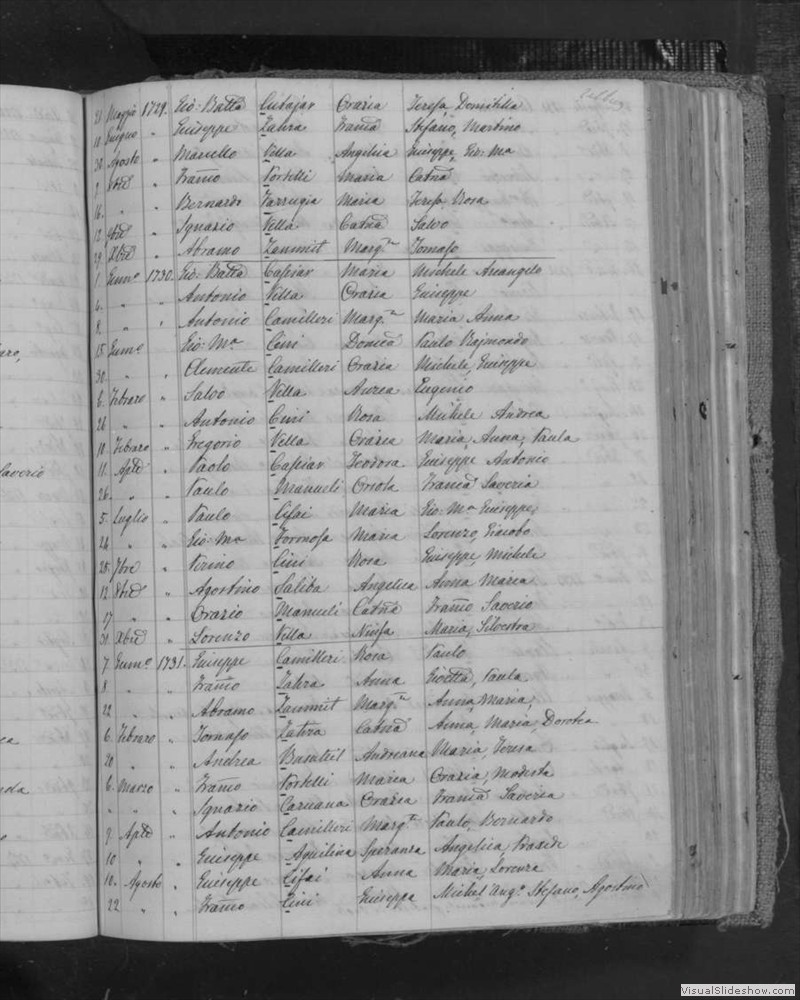 21 Maggio 1729. Gio: Batta Cutajar Grazia Teresa Domitilla
10 Giugno " Giuseppe Zahra Franca Stefano, Martino
30 Agosto " Marcello Vella Angelica Giuseppe, Gio: Ma
7bre " Franco Portelli Maria Catna
16. " " Bernardo Farrugia Maria Teresa Rosa
12 9bre " Ignazio Vella Catna Salvo
29 Xbre " Abramo Zammit Marga Tomaso
1 Genno 1730. Gio: Batta Cassar Maria Michele Arcangelo
6. " " Antonio Vella Grazia Giuseppe
8. " " Antonio Camilleri Marga Maria Anna
15. Genno Gio: Ma Cini Domca Paulo Rajmondo
30. " " Clemente Camilleri Grazia Michele, Giuseppe
6. Febraro " Salvo Vella Aurea Eugenio
26 " " Antonio Cini Rosa Michele Andrea
10. Febraro " Gregorio Vella Grazia Maria, Anna, Paula
11. Aple " Paolo Cassar Teodora Giuseppe Antonio
26. " " Paulo Manueli Orsola Franca Saveria
5. Luglio " Paulo Cifai Maria Gio: Ma Giuseppe,
24 " " Gio: Ma Formosa Maria Lorenzo, Giacobo
28. 7bre " Pirino Cini Rosa Giuseppe, Michele
12 8bre " Agostino Saliba Angelica Anna Maria
17 " " Grazio Manueli Catna Franco Saverio
31. Xbre " Lorenzo Vella Ninfa Maria, Silvestra
7 Genno 1731. Giuseppe Camilleri Rosa Paulo
8 " " Franco Zahra Anna Paula
22 " " Abramo Zammit Marga Anna, Maria,
6. Febraro " Tomaso Zahra Catna Anna, Maria, Dorotea
20 " " Andrea Busuttil Andreana Maria, Teresa
6. Marzo " Franco Portelli Maria Grazia, Modesta
" " " Ignazio Caruana Grazia Franca Saveria
9. Aple " Antonio Camilleri Marga Paulo, Bernardo
10 " " Giuseppe Aquilina Speranza Angelica, Prasede
10. Agosto " Giuseppe Cifai Anna Maria, Lorenza
22 " " Franco Cini Giuseppa Michel Ango Stefano, Agostino
averio
VisualSlideshow.com